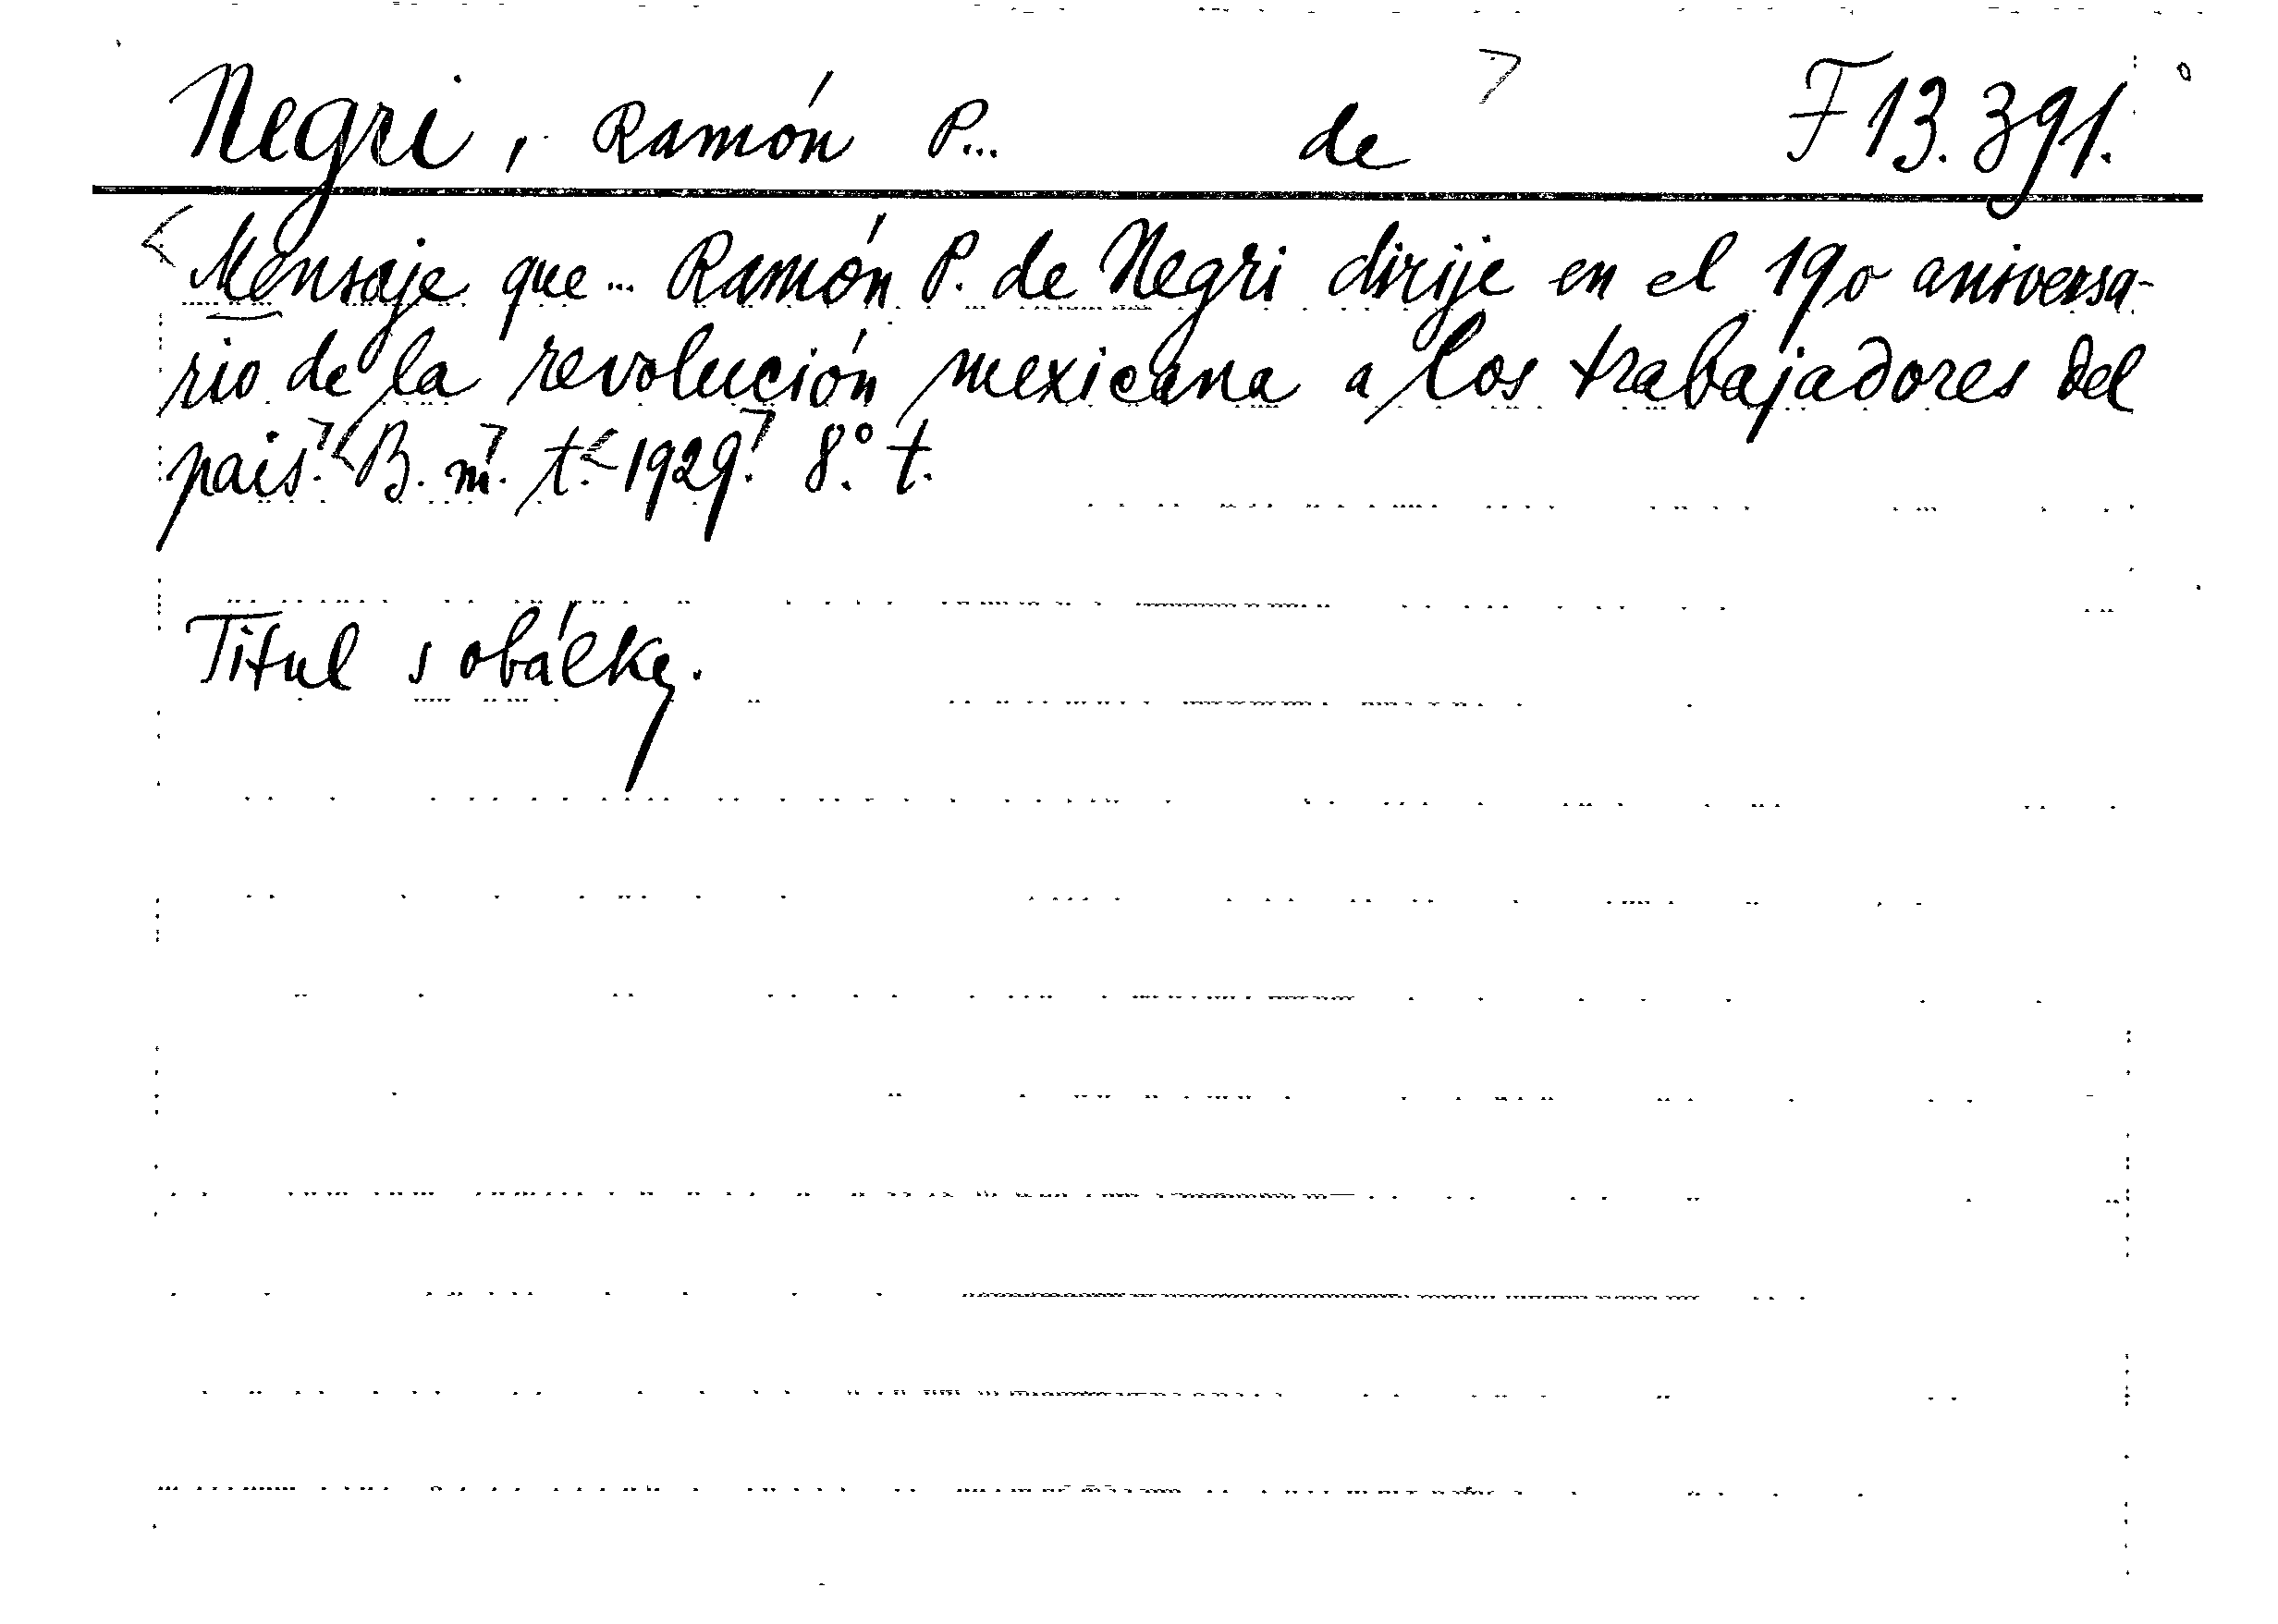 Negri, Ramón P... de F 13.391.
Mensaje que... Ramón P. de Negri dirije en el 19o aniversa-
rio de la revolución mexicana a los trabajadores del
pais. B. m. t. 1929. 8.° t.
Titul s obálky.